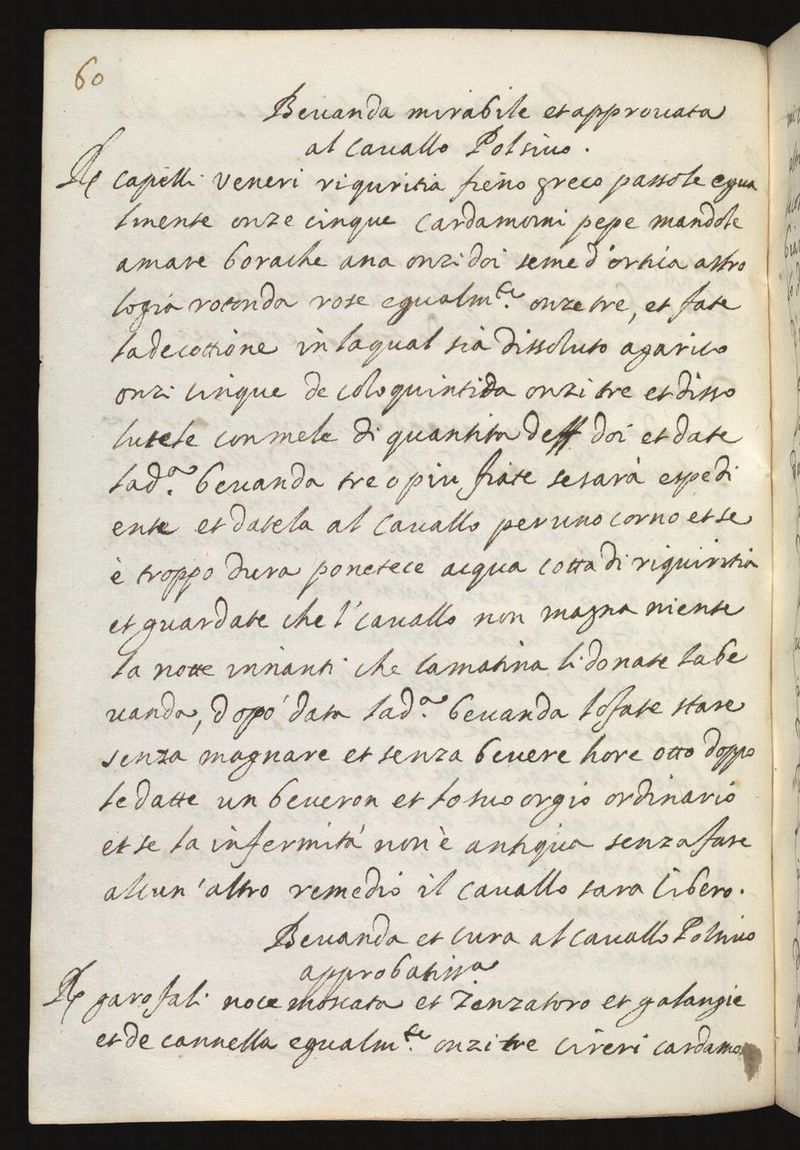 60
Beuanda mirabile et approuata
al Cauallo Polsiuo.
℞ Capelli Veneri riquritia fieno greco passole egua
lmente onze cinque Cardamomi pepe mandole
amare borache ana onzi doi seme d'ortica astro
logia rotonda rose egualm.te onze tre, et fate
la decottione in laqual sia dissoluto agarico
onzi cinque de coloquintida onzi tre et disso
lutele con mele di quantita de ff doi et date
la d.a beuanda tre o piu fiate se sarà espedi
ente et datela al Cauallo per uno corno et se
è troppo dura ponetece acqua cotta di riquiritia
et guardate che l'cauallo non magna niente
la notte innanti che lamatina li donate la be
uanda, dopo' data la d.a beuanda lo fate stare
senza magnare et senza beuere hore otto doppo
le datte un beueron et lo suo orgio ordinario
et se la infermità non è antiqua senza fare
alcun'altro remedio il Cauallo sara libero.
Beuanda et cura al Cauallo Polsiuo
approbatiss.a
℞ garofali noce moscata et Zenzauoro et galangie
et de cannella egualm.te onzi tre cireri cardamo